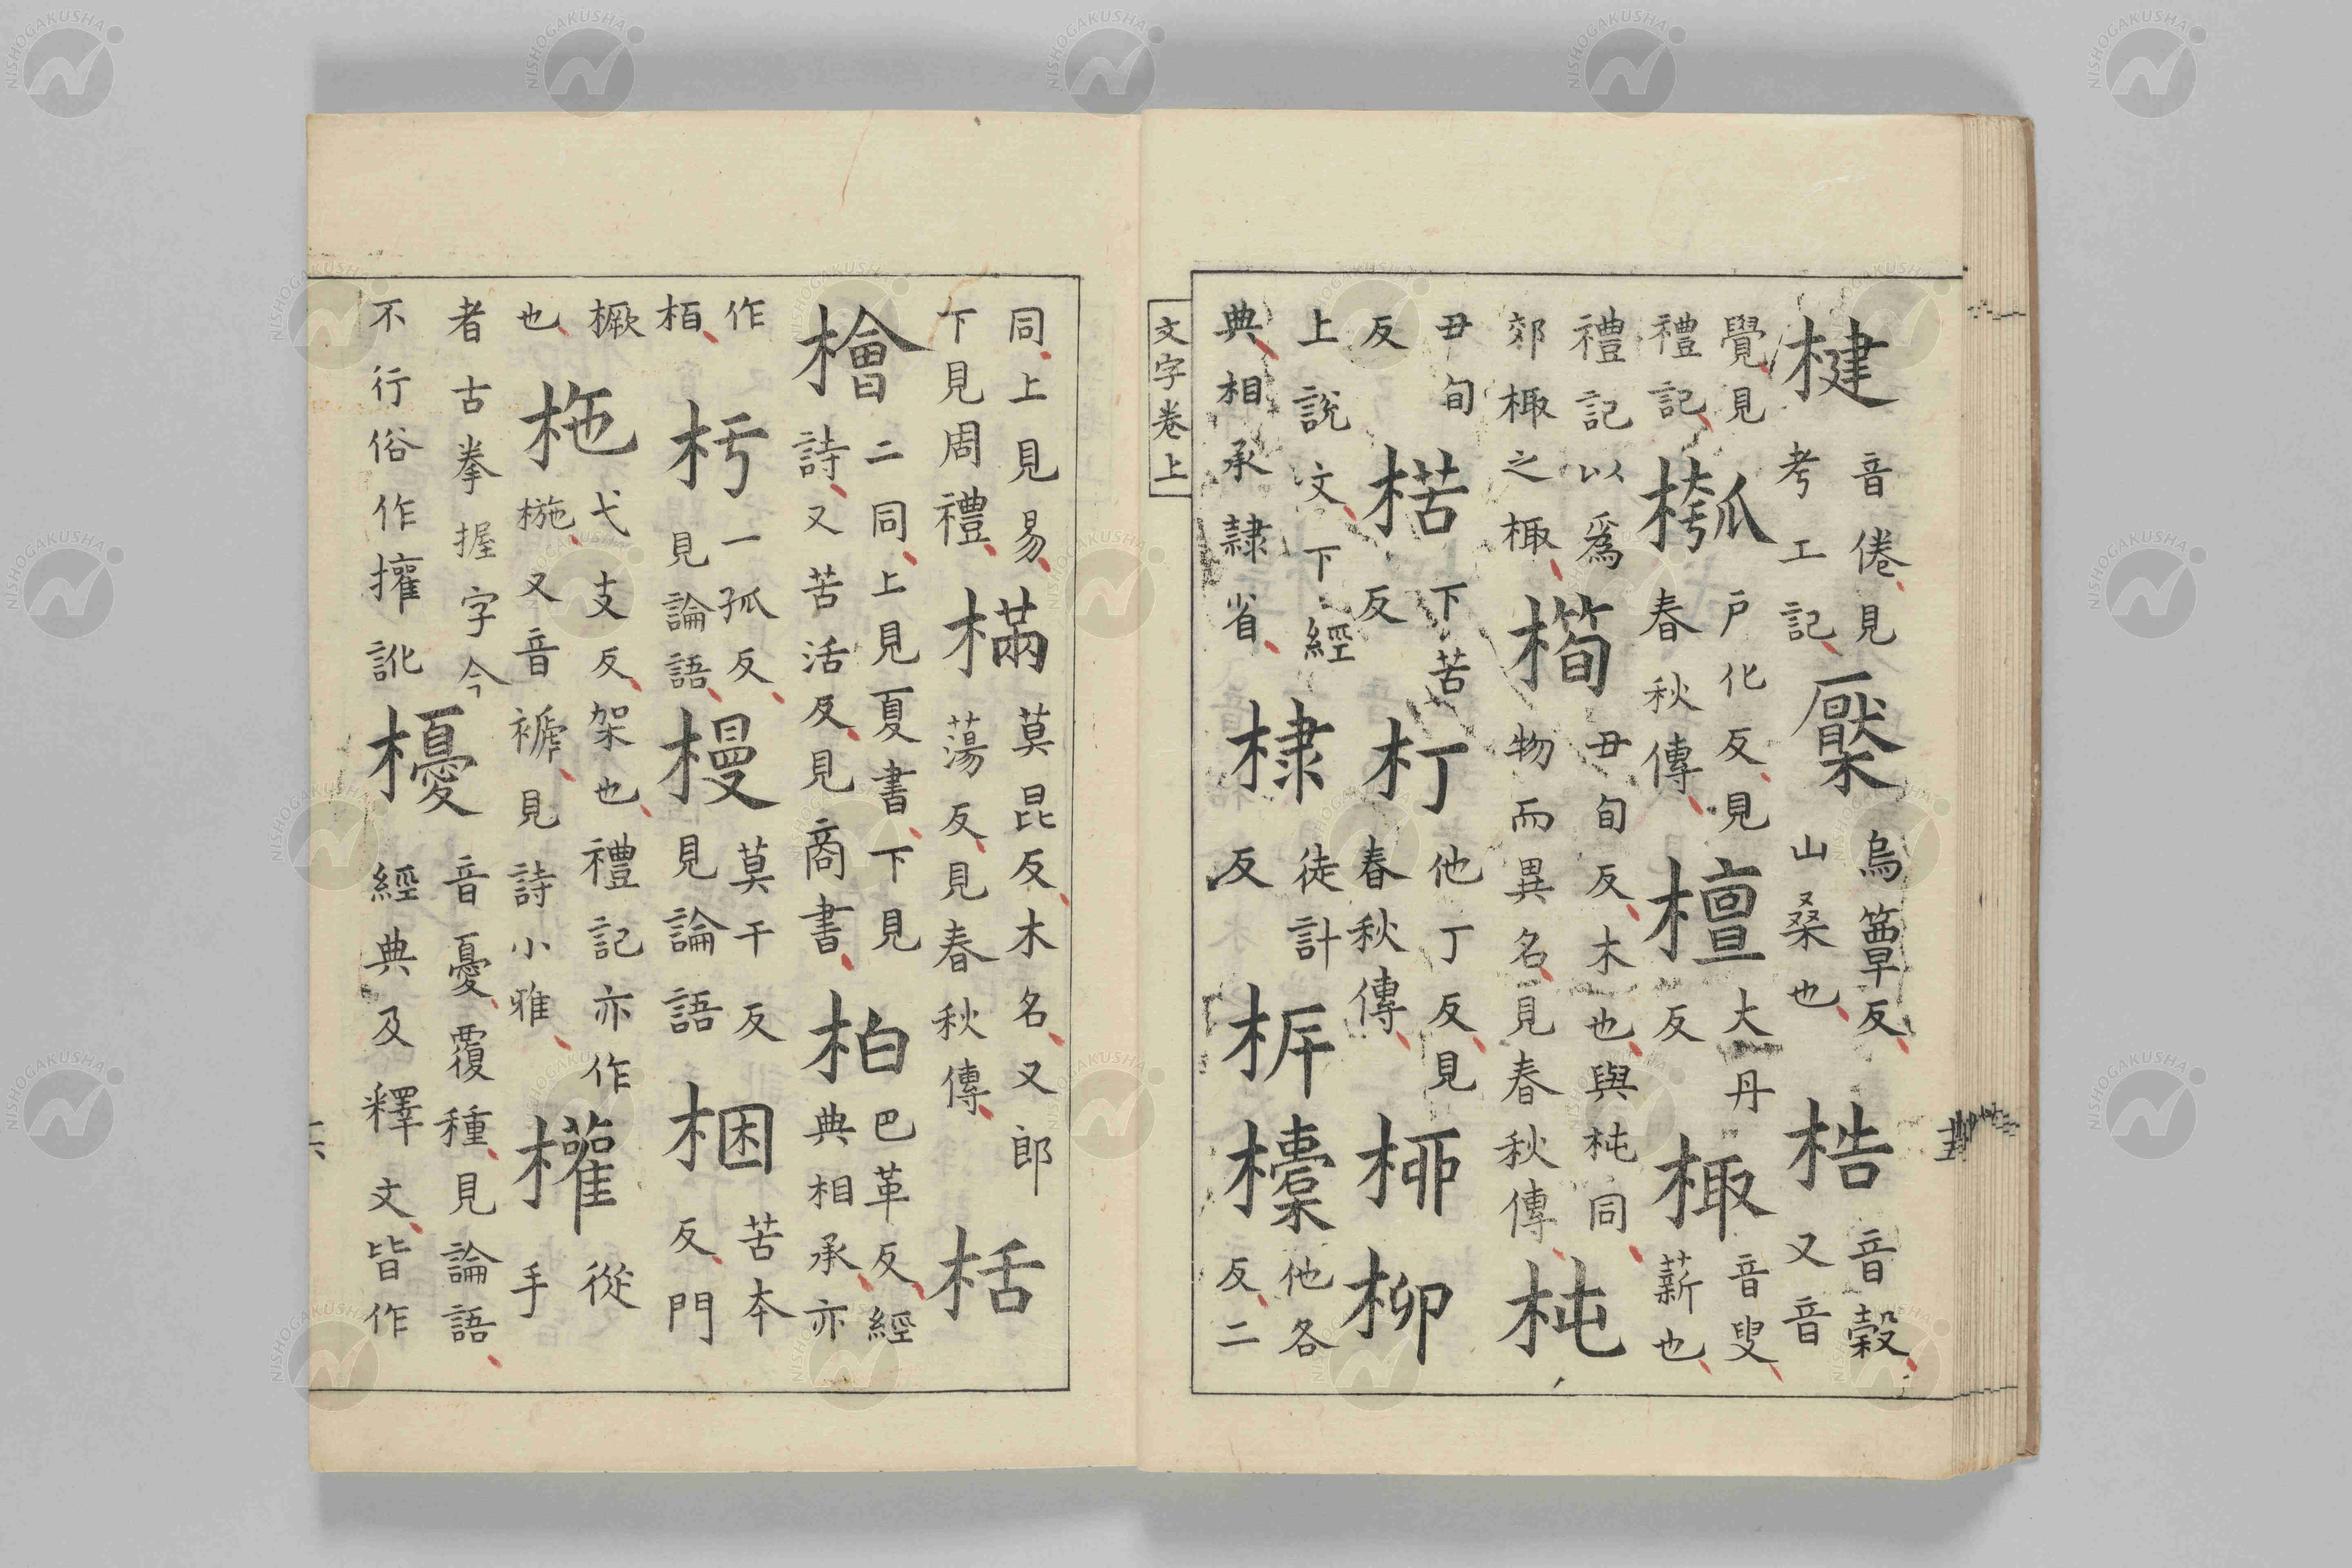 楗音倦見
考工記檿烏簟反
山桑也梏音穀
又音
覺見
禮記戶化反見
春秋傳檀大丹
反棷音叟
薪也
禮記以爲
郊棷之棷橁丑旬反木也與杶同
物而異名見春秋傳杶
丑旬
反楛下苦
反朾他丁反見
春秋傳桺柳
上說文下經
典相承隷省棣徒計
反㭊他各
反二
文字卷上
同上見易
下見周禮樠莫昆反木名又郎
蕩反見春秋傳栝
檜二同上見夏書下見
詩又苦活反見商書柏巴革反經
典相承亦
作
栢杇一孤反
見論語槾莫干反
見論語梱苦本
反門
橛
也柂弋支反架也禮記亦作
椸又音褫見詩小雅權從
手
者古拳握字今
不行俗作㩲訛櫌音憂覆種見論語
經典及釋文皆作